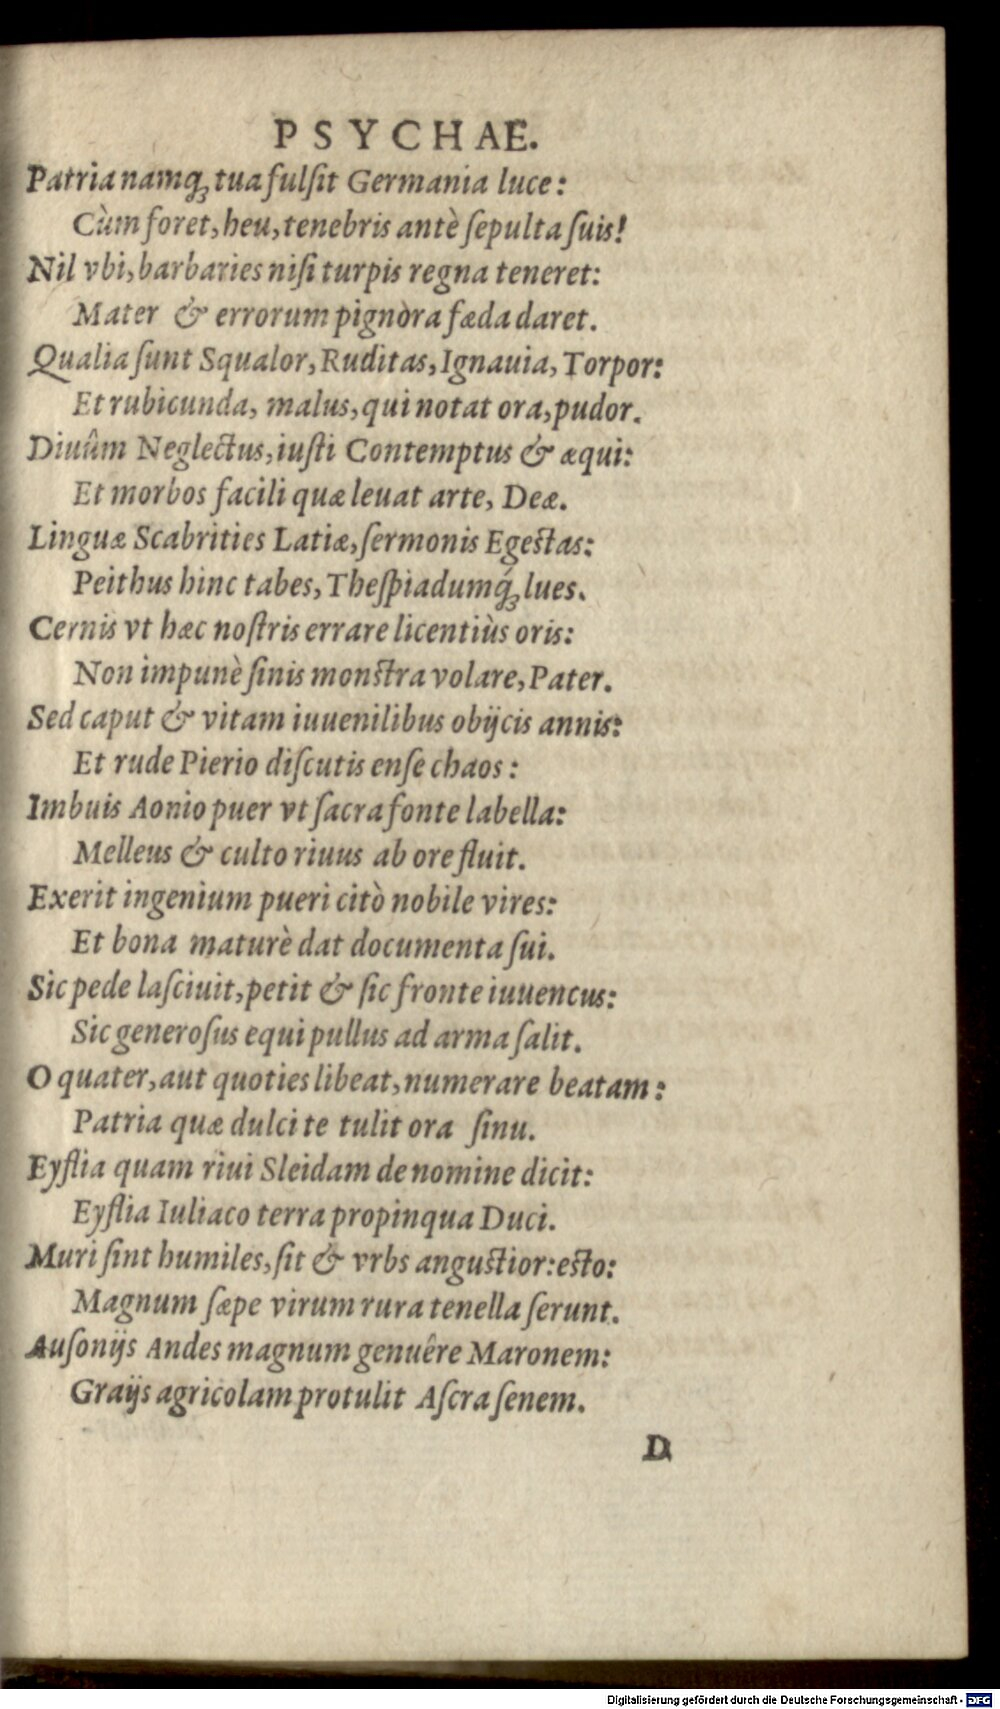 PSYCHAE.
Patria namq́; tua fulſit Germania luce:
Cùm foret, heu, tenebris antè ſepulta ſuis!
Nil vbi, barbaries niſi turpis regna teneret:
Mater & errorum pignora fæda daret.
Qualia ſunt Squalor, Ruditas, Ignauia, Torpor:
Et rubicunda, malus, qui notat ora, pudor.
Diuûm Neglectus, iuſti Contemptus & æqui:
Et morbos facili quæ leuat arte, Deæ.
Linguæ Scabrities Latiæ, ſermonis Egeſtas:
Peithus hinc tabes, Theſpiadumq́; lues.
Cernis vt hæc noſtris errare licentiùs oris:
Non impunè ſinis monſtra volare, Pater.
Sed caput & vitam iuuenilibus obijcis annis:
Et rude Pierio diſcutis enſe chaos:
Imbuis Aonio puer vt ſacra fonte labella:
Melleus & culto riuus ab ore fluit.
Exerit ingenium pueri citò nobile vires:
Et bona maturè dat documenta ſui.
Sic pede laſciuit, petit & ſic fronte iuuencus:
Sic generoſus equi pullus ad arma ſalit.
O quater, aut quoties libeat, numerare beatam:
Patria quæ dulci te tulit ora ſinu.
Eyflia quam riui Sleidam de nomine dicit:
Eyflia Iuliaco terra propinqua Duci.
Muri ſint humiles, ſit & vrbs anguſtior: eſto:
Magnum ſæpe virum rura tenella ſerunt.
Auſonijs Andes magnum genuêre Maronem:
Graijs agricolam protulit Aſcra ſenem.
D
Digitalisierung gefördert durch die Deutsche Forschungsgemeinschaft - DFG